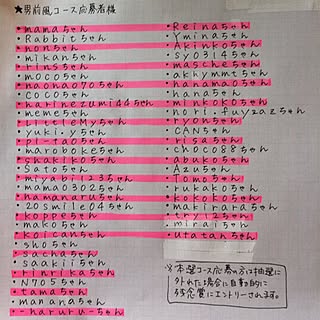 ★男前風コース応募者様
・mamaちゃん
・Rabbitちゃん
・nonちゃん
・mikanちゃん
・rinsちゃん
・mocoちゃん
・naonao70ちゃん
・cocoちゃん
・harinezumi44ちゃん
・memeちゃん
・LittleMyちゃん
・yuki.yちゃん
・pi-taoちゃん
・marobokeちゃん
・shakikoちゃん
・Satoちゃん
・miyabi1235ちゃん
・mama0302ちゃん
・hamaruちゃん
・20smile04ちゃん
・koppeちゃん
・makoちゃん
・koicanちゃん
・shoちゃん
・sachaちゃん
・saakiiちゃん
・rinrikaちゃん
・N705ちゃん
・tamaちゃん
・mananaちゃん
・-haruru-ちゃん
・Reinaちゃん
・Yminaちゃん
・Akinkoちゃん
・syo314ちゃん
・mascheちゃん
・akhymmtちゃん
・hanamaoちゃん
・hanaちゃん
・minkokoちゃん
・nori.fuyzazちゃん
・ryonちゃん
・CANちゃん
・risaちゃん
・choco88ちゃん
・abukoちゃん
・Azuちゃん
・Tomoちゃん
・rukakoちゃん
・kokokoちゃん
・makiraraちゃん
・try12ちゃん
・miraiちゃん
・utatanちゃん
※本選コース応募の方は抽選に
外れた場合に自動的に
残念賞にエントリーされます。